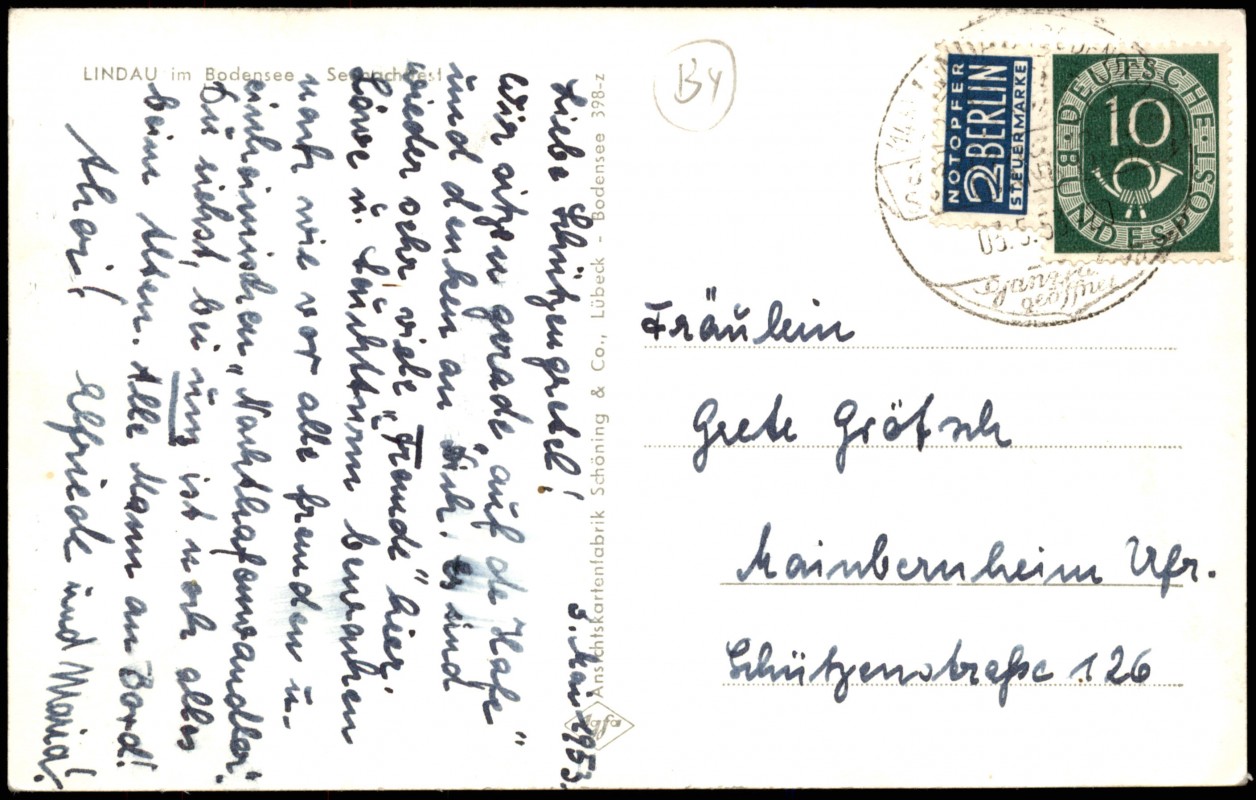 LINDAU im Bodensee Seenachtfest
3. Mai 1953.
Liebe Schützengretel!
Wir sitzen gerade „auf de Hafe"
und denken an Dich. Es sind
wieder sehr viele „Fremde" hier.
Löwe u. Leuchtturm bewachen
nachts wie vor alle fremden u.
einheimischen „Nachthafenwandler".
Du siehst, bei uns ist noch alles
beim Alten. Alle Mann an Bord!
Ahoi! Elfriede und Maria!
Ansichtskartenfabrik Schöning & Co., Lübeck - Bodensee 398-z
Agfa
B4
NOTOPFER
2 BERLIN
STEUERMARKE
DEUTSCHE BUNDESPOST
10
Fräulein
Grete Grötsch
Mainbernheim Ufr.
Schützenstraße 126